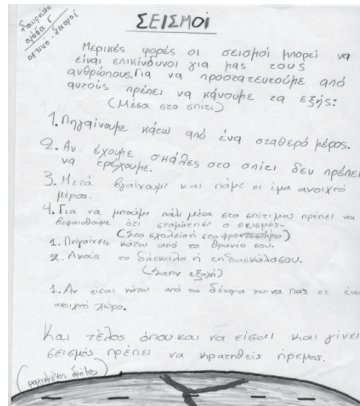 ΣΕΙΣΜΟΙ
Μερικές φορές οι σεισμοί μπορεί να
είναι επικίνδυνοι για μας τους
ανθρώπους. Για να προστατευτούμε από
αυτούς πρέπει να κάνουμε τα εξής:
(Μέσα στο σπίτι)
1. Πηγαίνουμε κάτω από ένα σταθερό μέρος.
2. Αν έχουμε σκάλες στο σπίτι δεν πρέπει
να τρέχουμε.
3. Μετά βγαίνουμε και πάμε σε ένα ανοιχτό
μέρος.
4. Για να μπούμε πάλι μέσα στο σπίτι μας πρέπει να
βεβαιωθούμε ότι σταμάτησε ο σεισμός.
(Στο σχολείο ή στο φροντιστήριο)
1. Πηγαίνεις κάτω από το θρανίο σου.
2. Ακούς το δάσκαλο ή τη δασκάλα σου.
(Στην εξοχή)
1. Αν είσαι κάτω από τα δέντρα να πας σε ένα
ανοιχτό χώρο.
Και τέλος όπου και να είσαι και γίνει
σεισμός πρέπει να κρατηθείς ήρεμος.